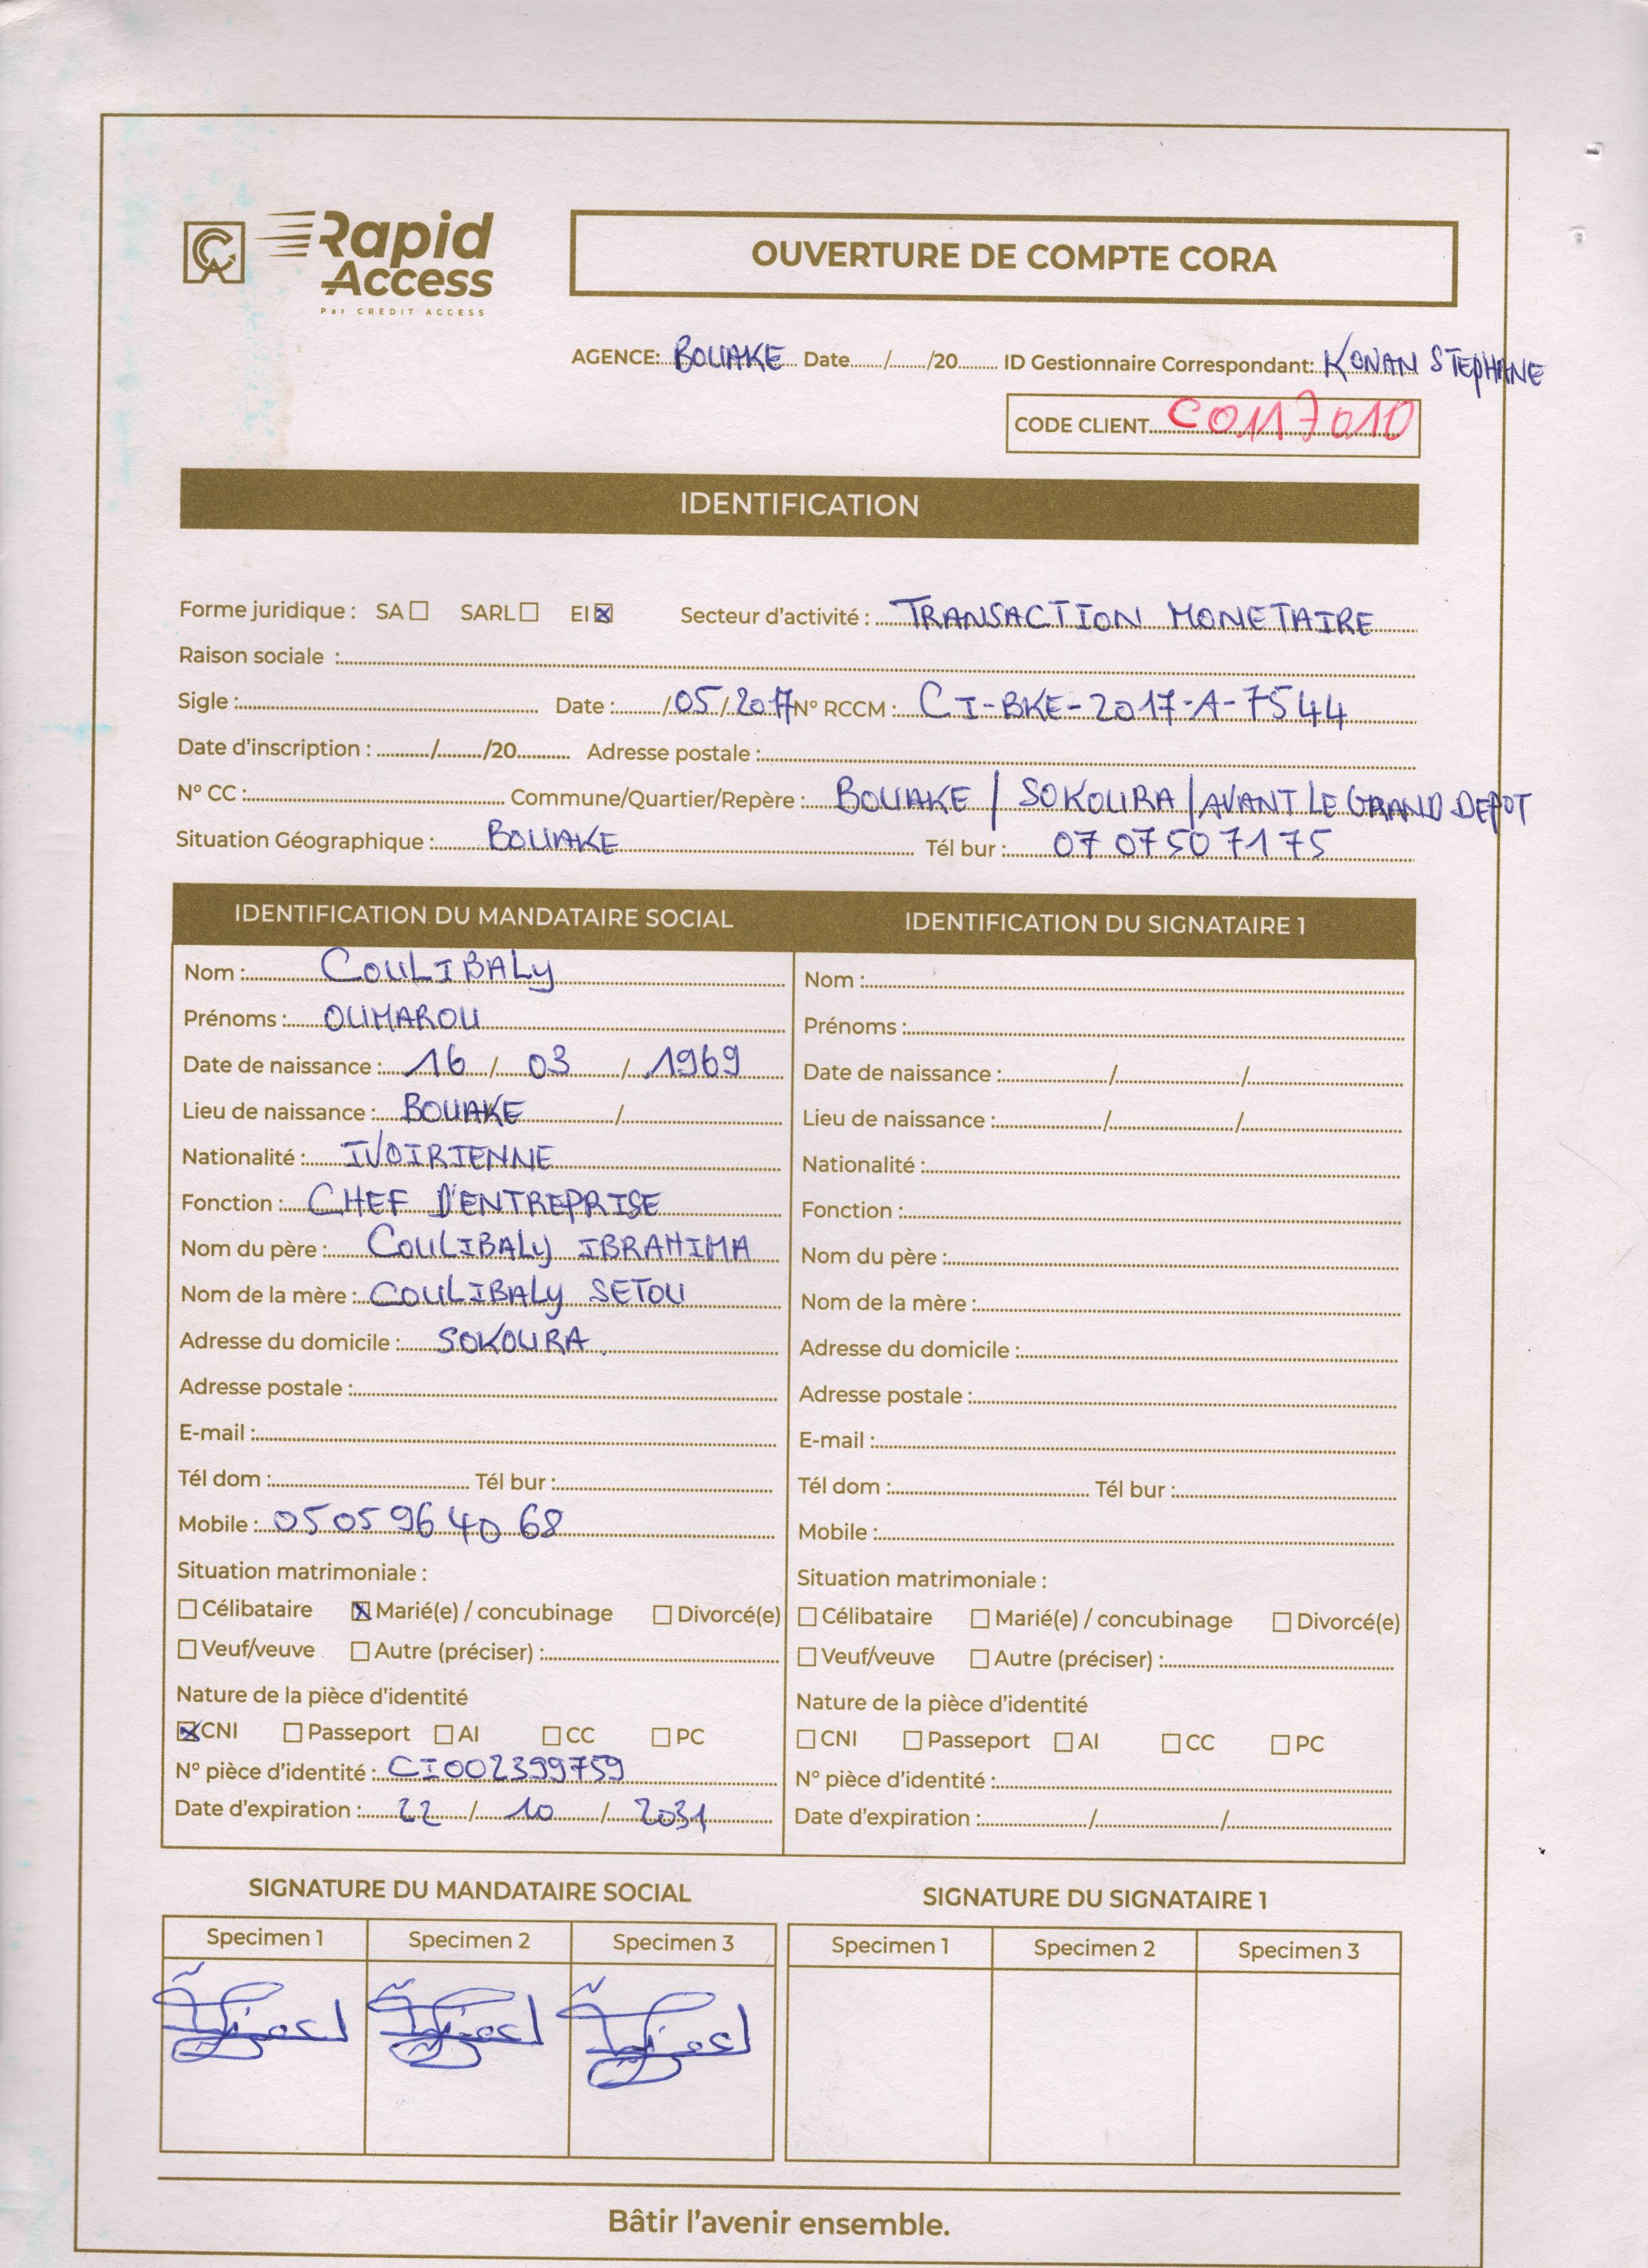 Rapid
Access
Par CREDIT ACCESS
OUVERTURE DE COMPTE CORA
AGENCE: BOUAKE Date....../......./20........ ID Gestionnaire Correspondant: KONAN STEPHANE
CODE CLIENT C0117010
IDENTIFICATION
Forme juridique : SA ☐ SARL ☐ EI ☒ Secteur d'activité : TRANSACTION MONETAIRE
Raison sociale :
Sigle : Date : ....../05/2017 N° RCCM : CI-BKE-2017-A-7544
Date d'inscription : ........./......../20.......... Adresse postale :
N° CC : Commune/Quartier/Repère : BOUAKE / SOKOURA / AVANT LE GRAND DEPOT
Situation Géographique : BOUAKE Tél bur : 07 07 50 71 75
IDENTIFICATION DU MANDATAIRE SOCIAL
Nom : COULIBALY
Prénoms : OUMAROU
Date de naissance : 16 / 03 / 1969
Lieu de naissance : BOUAKE /
Nationalité : IVOIRIENNE
Fonction : CHEF D'ENTREPRISE
Nom du père : COULIBALY IBRAHIMA
Nom de la mère : COULIBALY SETOU
Adresse du domicile : SOKOURA
Adresse postale :
E-mail :
Tél dom : Tél bur :
Mobile : 05 05 96 40 68
Situation matrimoniale :
☐ Célibataire ☒ Marié(e) / concubinage ☐ Divorcé(e)
☐ Veuf/veuve ☐ Autre (préciser) :
Nature de la pièce d'identité
☒ CNI ☐ Passeport ☐ AI ☐ CC ☐ PC
N° pièce d'identité : CI002399759
Date d'expiration : 22 / 10 / 2031
IDENTIFICATION DU SIGNATAIRE 1
Nom :
Prénoms :
Date de naissance : / /
Lieu de naissance : / /
Nationalité :
Fonction :
Nom du père :
Nom de la mère :
Adresse du domicile :
Adresse postale :
E-mail :
Tél dom : Tél bur :
Mobile :
Situation matrimoniale :
☐ Célibataire ☐ Marié(e) / concubinage ☐ Divorcé(e)
☐ Veuf/veuve ☐ Autre (préciser) :
Nature de la pièce d'identité
☐ CNI ☐ Passeport ☐ AI ☐ CC ☐ PC
N° pièce d'identité :
Date d'expiration : / /
SIGNATURE DU MANDATAIRE SOCIAL
Specimen 1 Specimen 2 Specimen 3
SIGNATURE DU SIGNATAIRE 1
Specimen 1 Specimen 2 Specimen 3
Bâtir l'avenir ensemble.